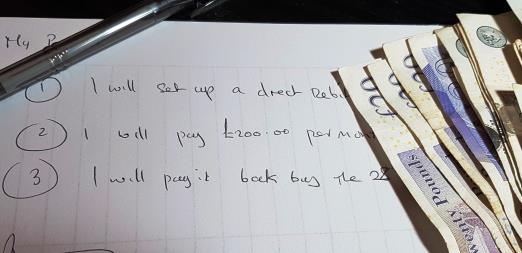 My P
1 I will set up a direct Debi
2 I will pay £200.00 per Mon
3 I will pay it back buy the 28
£20
Twenty Pounds